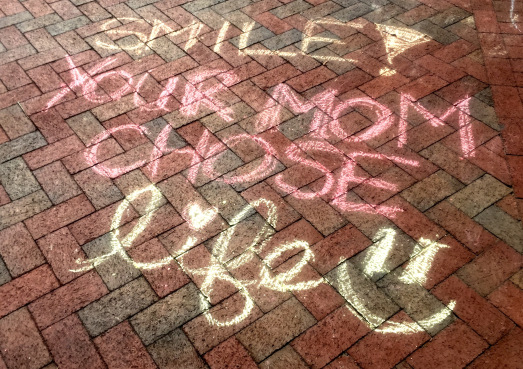 SMILE!
YOUR MOM
CHOSE
life